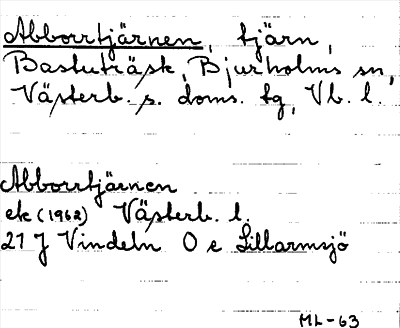 Abborrtjärnen, tjärn,
Bastuträsk, Bjurholms sn,
Västerb. s. doms. tg, Vb. l.
Abborrtjärnen
ek (1962) Västerb. l.
21 J Vindeln O e Lillarmsjö
ML-63